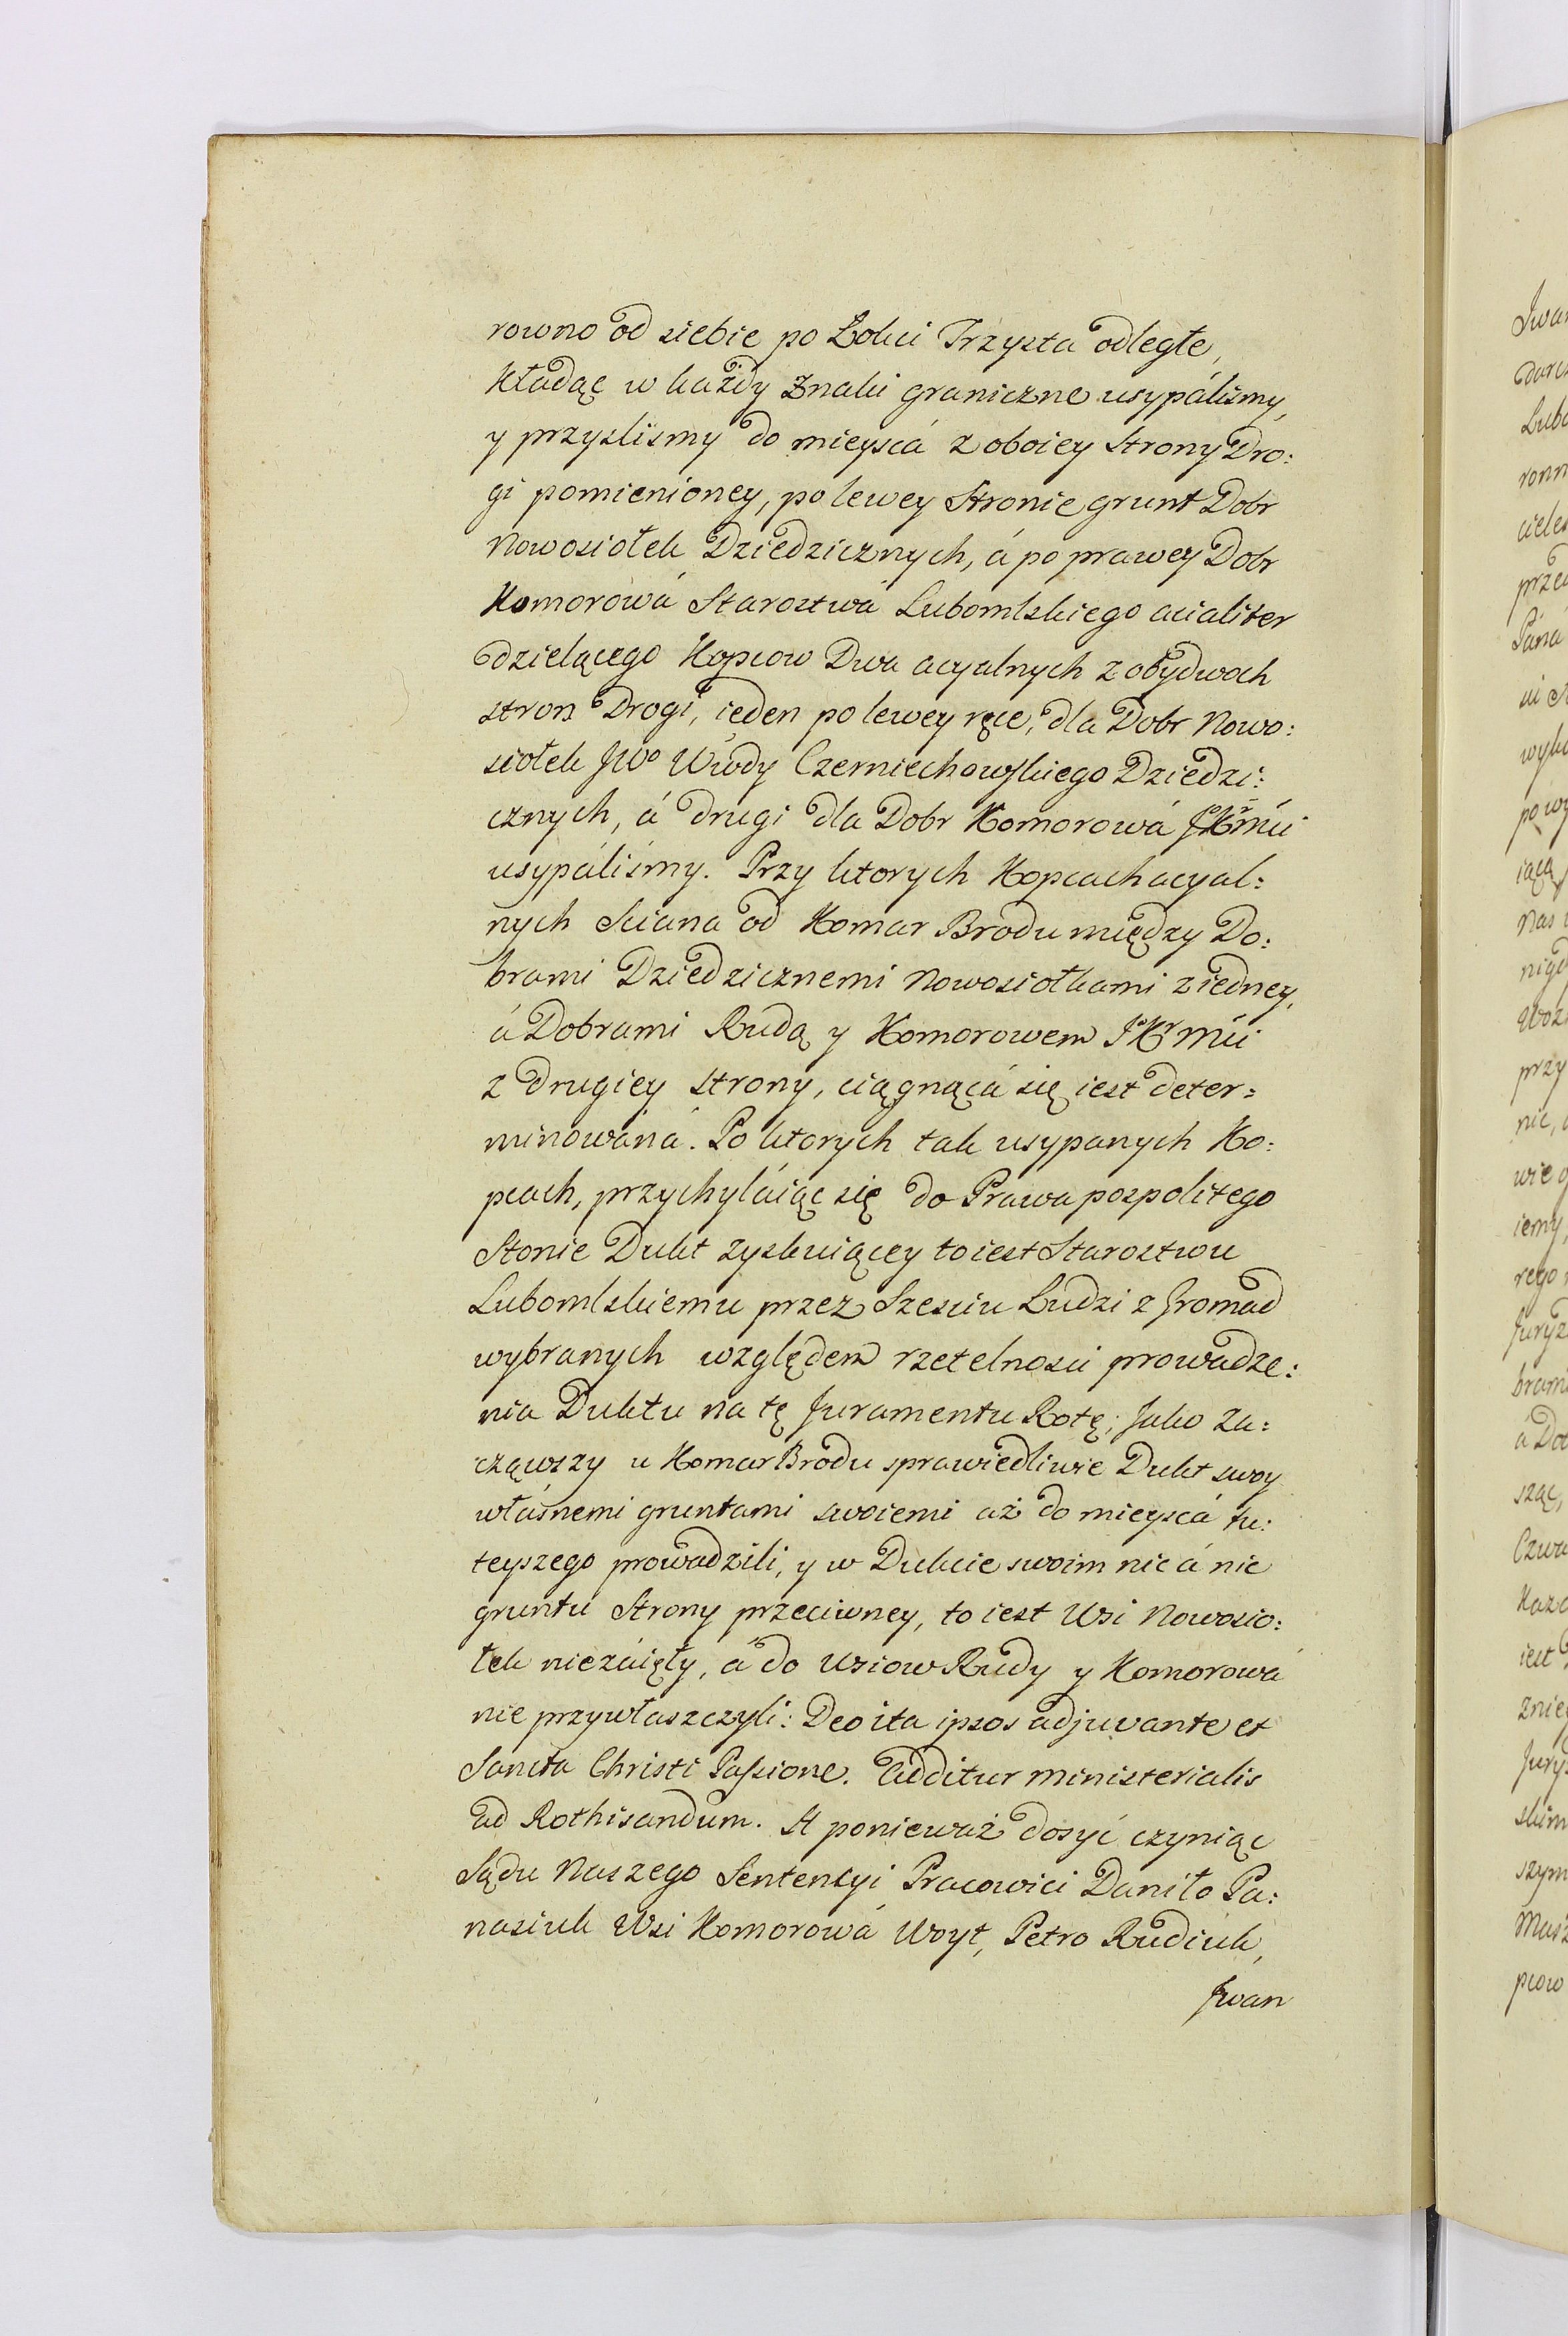 rowno od siebie po Łokci Trzysta odległe,
Kładąc w każdy Znaki graniczne usypáliśmy,
y przysliśmy do mieyscá z oboiey Strony Dro:
gi pomienioney, po lewey Stronie grunt Dobr
Nowosiołek Dziedzicznych, á po prawey Dobr
Komorowá Starostwá Lubomlskiego acialiter
dzielącego Kopcow Dwa acyalnych z obydwoch
stron Drogi, ieden po lewey ręce, dla Dobr Nowo:
siołek JWo Wwody Czerniechowskiego Dziedzi:
cznych, á drugi dla Dobr Komorowá JKrMci
usypáliśmy. Przy ktorych Kopcach acyal:
nych Sciana od Komar Brodu między Do:
brami Dziedzicznemi Nowosiołkami z iedney,
á Dobrami Rudą y Komorowem JKrMci
z drugiey strony, ciągnącá się iest deter:
minowáná. Po ktorych tak usypanych Ko:
pcach, przychyláiąc się do Prawa pospolitego
Stonie Dukt zyskuiącey to iest Starostwu
Lubomlskiemu przez Szesciu Ludzi z Gromad
wybranych względem rzetelnosci prowadze:
nia Duktu na tę Juramentu Rotę; Jako Za:
cząwszy u Komar Brodu sprawiedliwie Dukt swoy
własnemi gruntami swoiemi aż do mieyscá tu:
teyszego prowadzili, y w Dukcie swoim nic á nic
gruntu Strony przeciwney, to iest Wsi Nowosio:
łek niezáięły, á do Wsiow Rudy y Komorowá
nie przywłaszczyli: Deo ita ipsos adjuvante et
Sancta Christi Passione. Additur Ministerialis
ad Rothisandum. A ponieważ dosyć czyniąc
Sądu Naszego Sentencyi Pracowici Daniło Pa:
nasiuk Wsi Komorowá Woyt, Petro Rudiuk,
Jwan